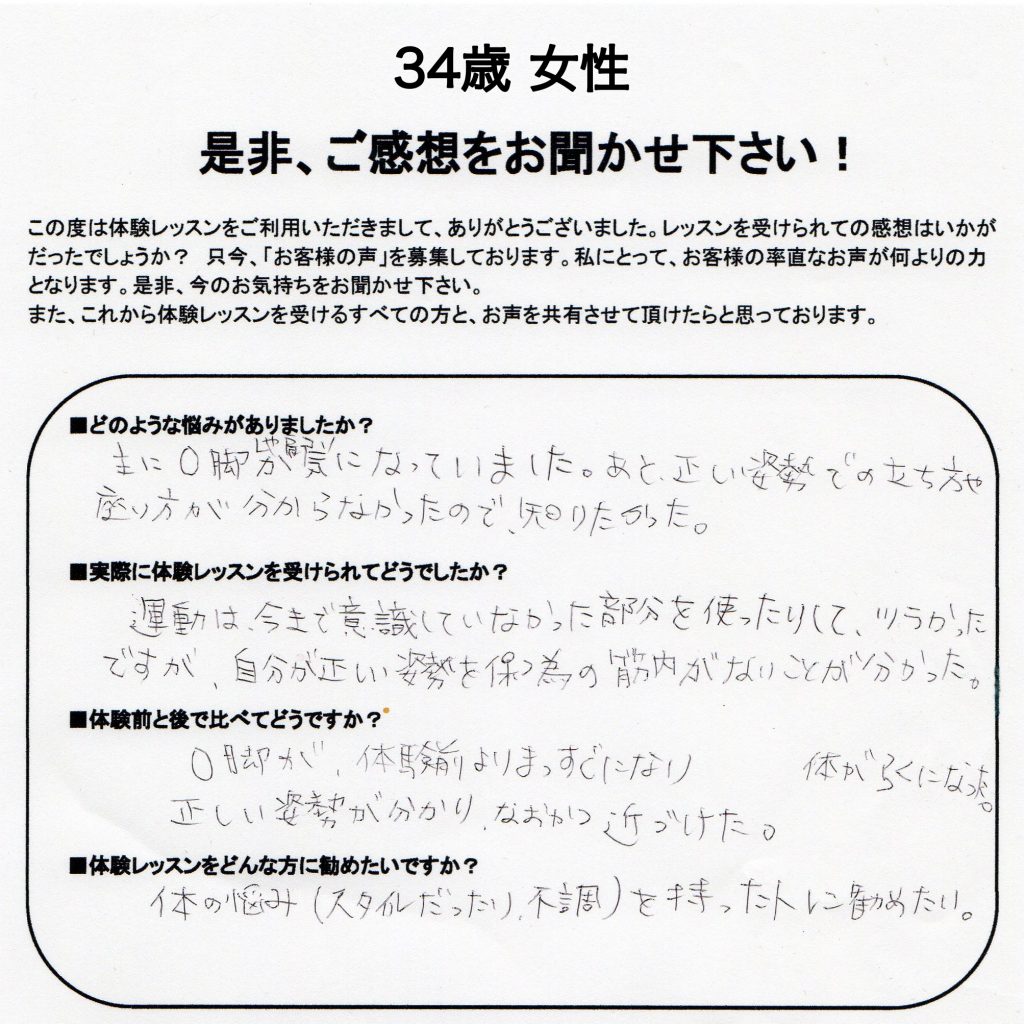 34歳 女性
是非、ご感想をお聞かせ下さい！
この度は体験レッスンをご利用いただきまして、ありがとうございました。レッスンを受けられての感想はいかが
だったでしょうか？ 只今、「お客様の声」を募集しております。私にとって、お客様の率直なお声が何よりの力
となります。是非、今のお気持ちをお聞かせ下さい。
また、これから体験レッスンを受けるすべての方と、お声を共有させて頂けたらと思っております。
■どのような悩みがありましたか？
主にO脚が気になっていました。あと、正しい姿勢での立ち方や
座り方が分からなかったので、知りたかった。
■実際に体験レッスンを受けられてどうでしたか？
運動は、今まで意識していなかった部分を使ったりして、ツラかった
ですが、自分が正しい姿勢を保つ為の筋肉がないことが分かった。
■体験前と後で比べてどうですか？
O脚が、体験前よりまっすぐになり 体がらくになった。
正しい姿勢が分かり、なおかつ近づけた。
■体験レッスンをどんな方に勧めたいですか？
体の悩み(スタイルだったり、不調)を持った人に勧めたい。